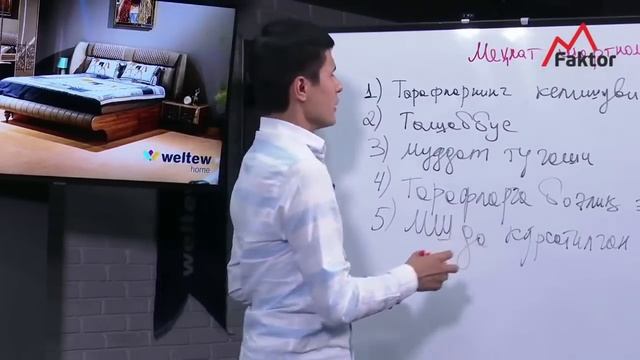 Меҳнат шартном
Faktor
1) Тарафларнинг келишуви
2) Ташаббус
3) муддат тугаши
4) Тарафларга боғлиқ э
5) МШ да кўрсатилган
weltew
home
weltew